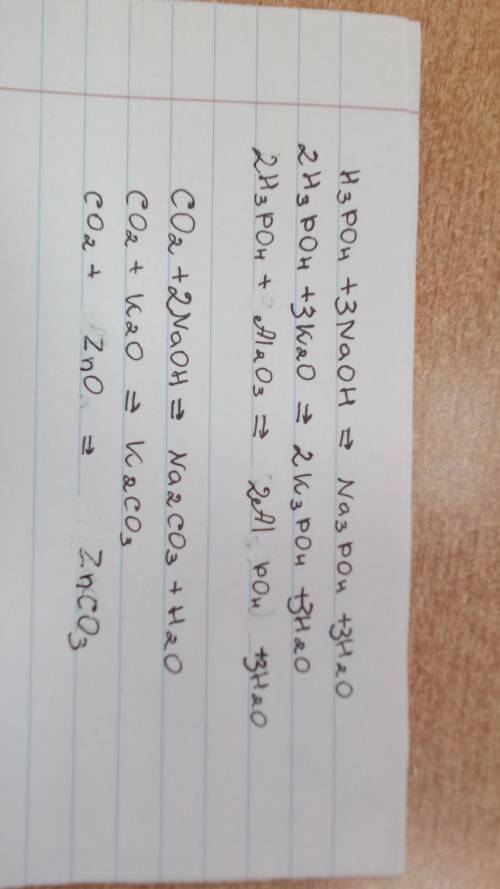 H3PO4 + 3NaOH => Na3PO4 + 3H2O
2H3PO4 + 3K2O => 2K3PO4 + 3H2O
2H3PO4 + Al2O3 => 2AlPO4 + 3H2O
CO2 + 2NaOH => Na2CO3 + H2O
CO2 + K2O => K2CO3
CO2 + ZnO => ZnCO3